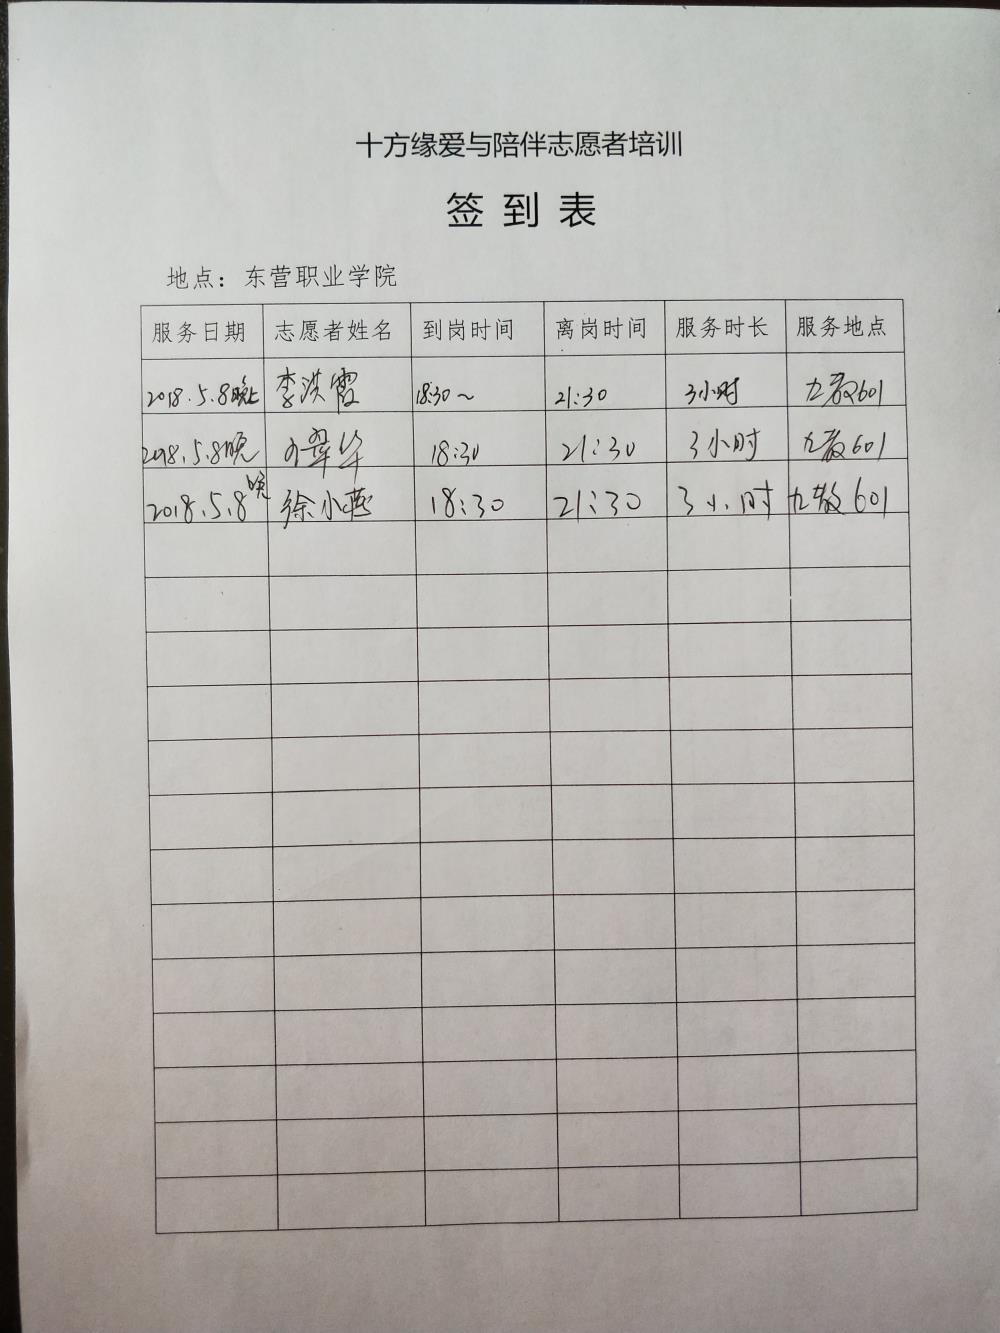 十方缘爱与陪伴志愿者培训
签到表
地点：东营职业学院
服务日期 志愿者姓名 到岗时间 离岗时间 服务时长 服务地点
2018.5.8晚上 李洪霞 18:30～ 21:30 3小时 九教601
2018.5.8晚 翠华 18:30 21:30 3小时 九教601
2018.5.8晚 徐小燕 18:30 21:30 3小时 九教601